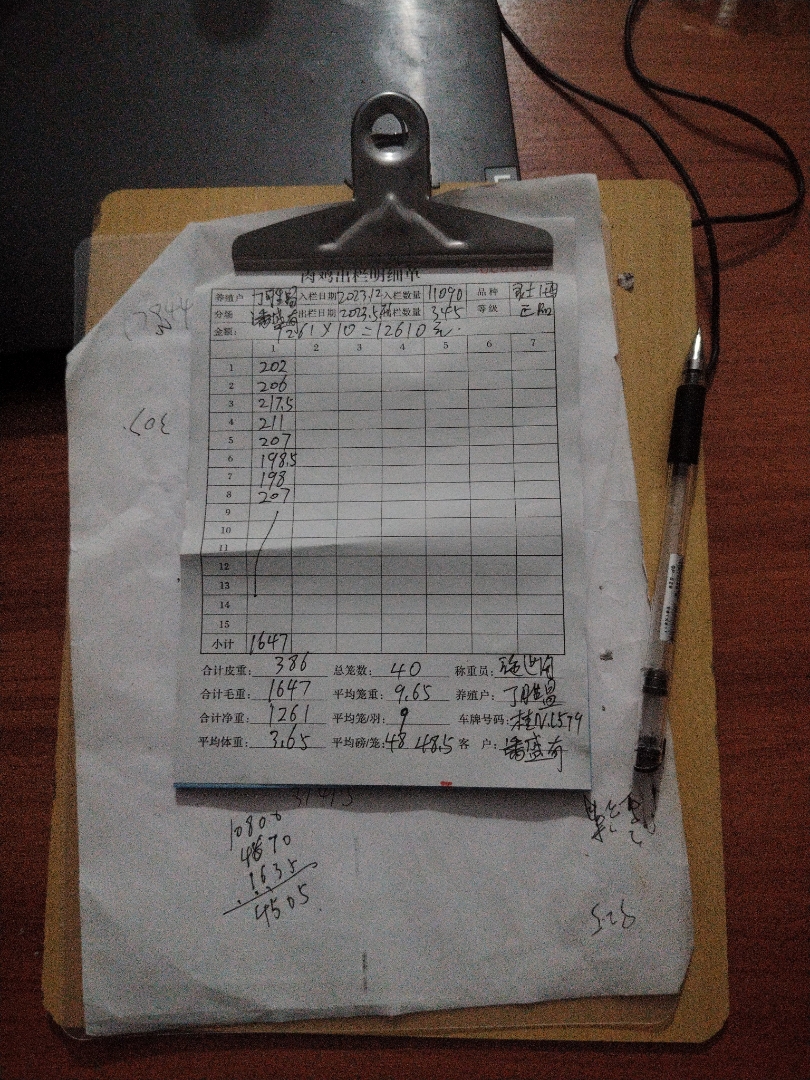 肉鸡出栏明细单
养殖户 入栏日期 2023.12 入栏数量 11090 品种
分场 出栏日期 2023.5 栏数量 345 等级 正
金额: 1261 × 10 = 12610 元.
1 2 3 4 5 6 7
1 202
2 206
3 217.5
4 211
5 207
6 198.5
7 198
8 207
9
10
11
12
13
14
15
小计 1647
合计皮重: 386 总笼数: 40 称重员:
合计毛重: 1647 平均笼重: 9.65 养殖户:
合计净重: 1261 平均笼/羽: 9 车牌号码: 桂N.L5579
平均体重: 3.65 平均磅/笼: 48 48.5 客 户:
10806
4870
1635
4505